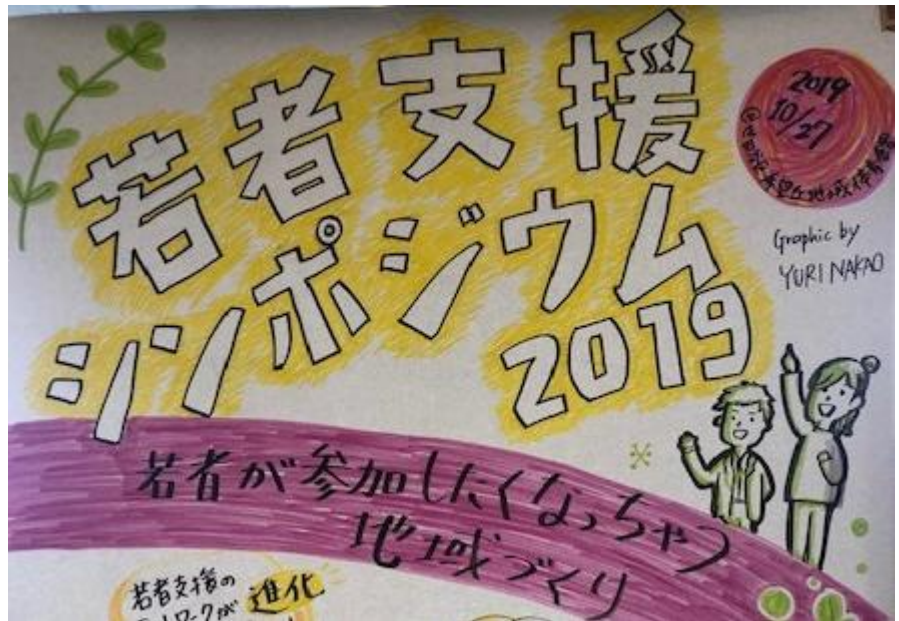 若者支援
シンポジウム
2019
2019
10/27
Graphic by
YURI NAKAO
若者が参加したくなっちゃう
地域づくり
若者支援の
進化